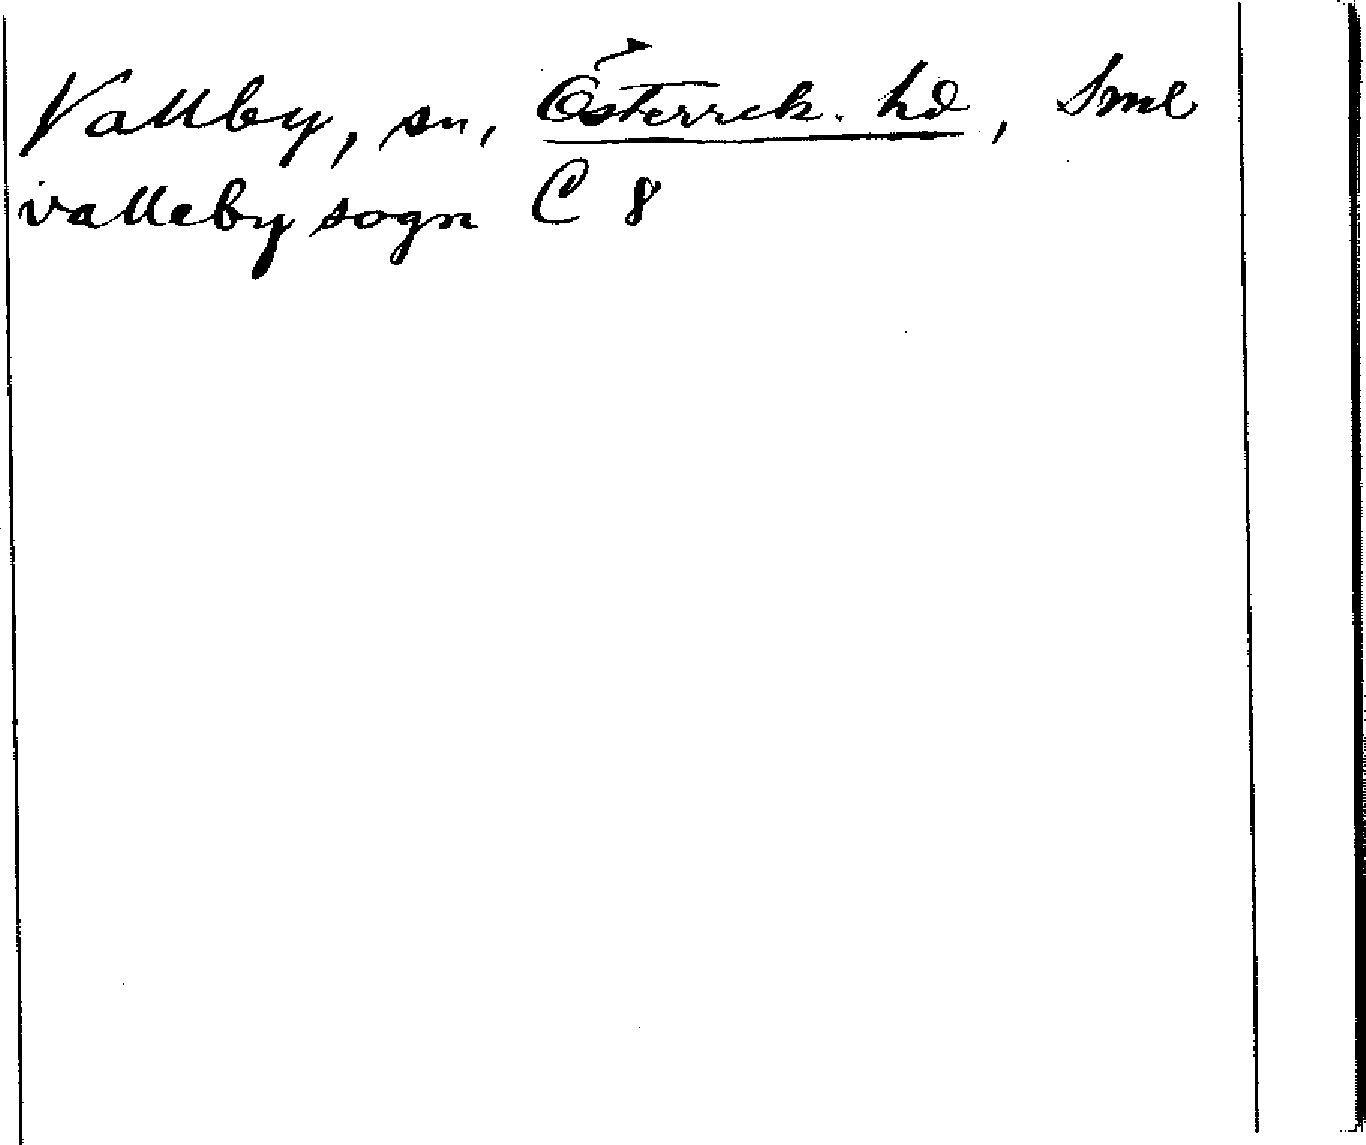 Vallby, sn, Österrek. hd, Sml
valleby sogn C 8